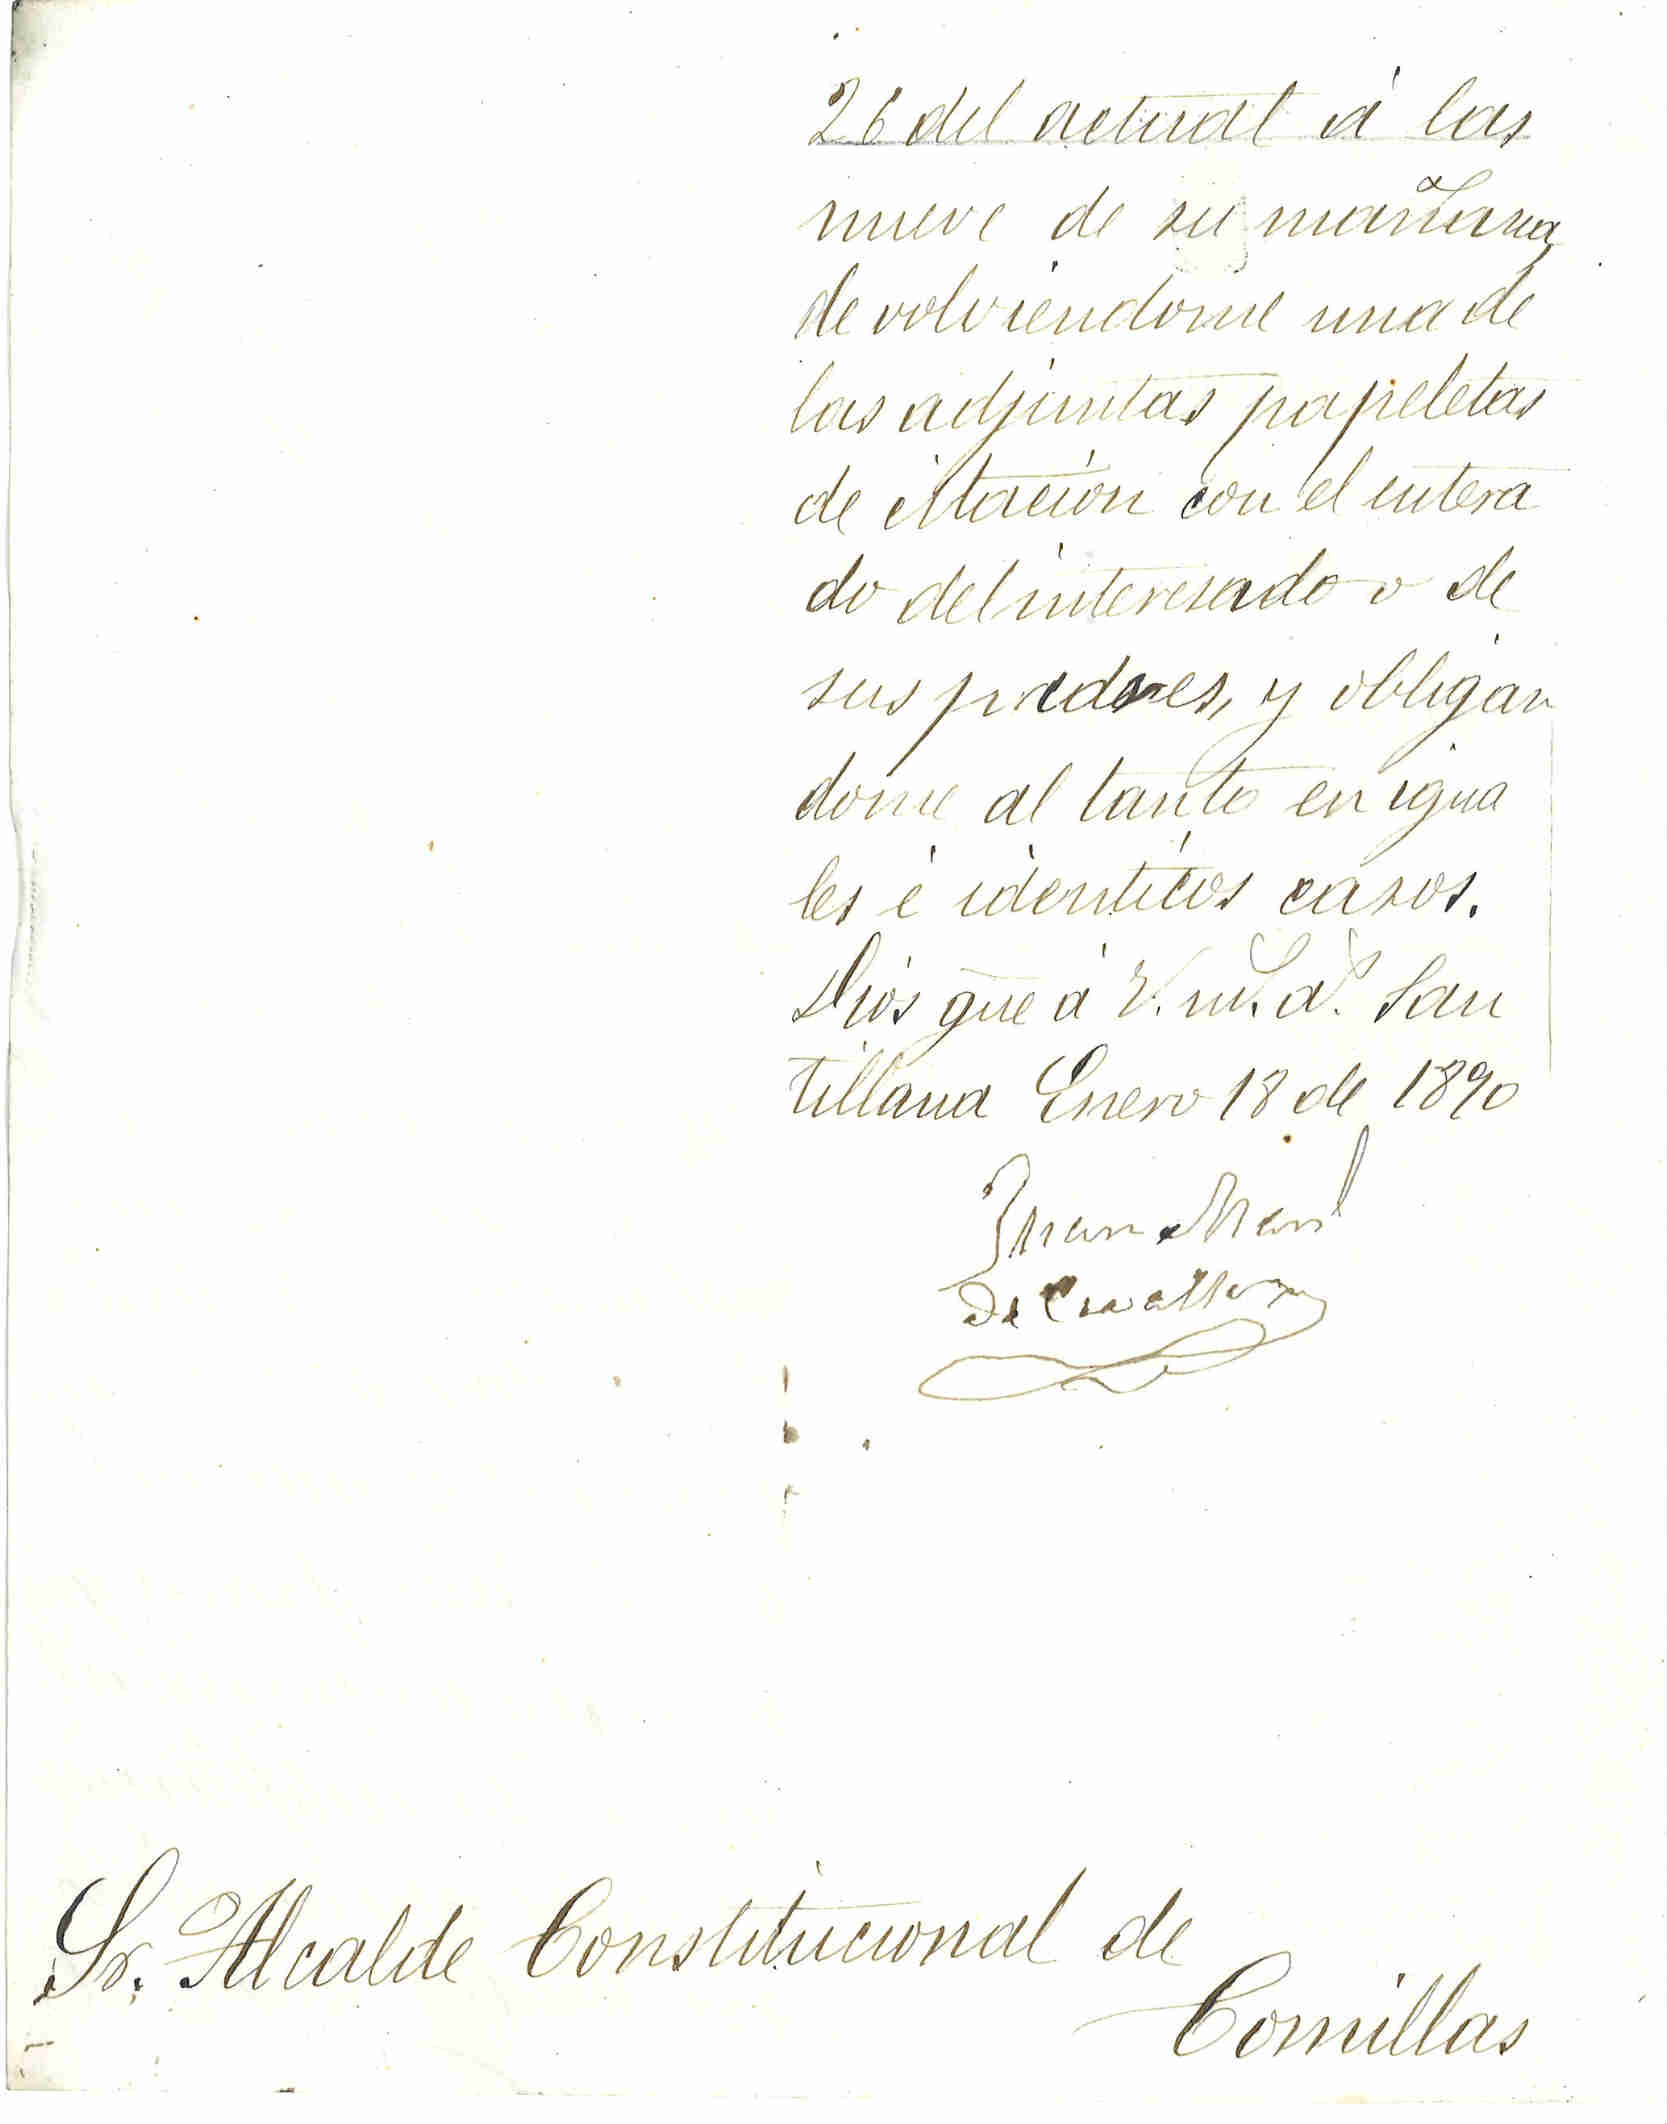 26 del actual á las
nueve de su mañana
devolviendome una de
las adjuntas papeletas
de citación con el entera
do del interesado o de
sus padres, y obligan
dome al tanto en igua
les é identicos casos.
Dios gue á V. m.s a.s San
tillana Enero 18 de 1890
Juan Man
de
Sr. Alcalde Constitucional de
Comillas